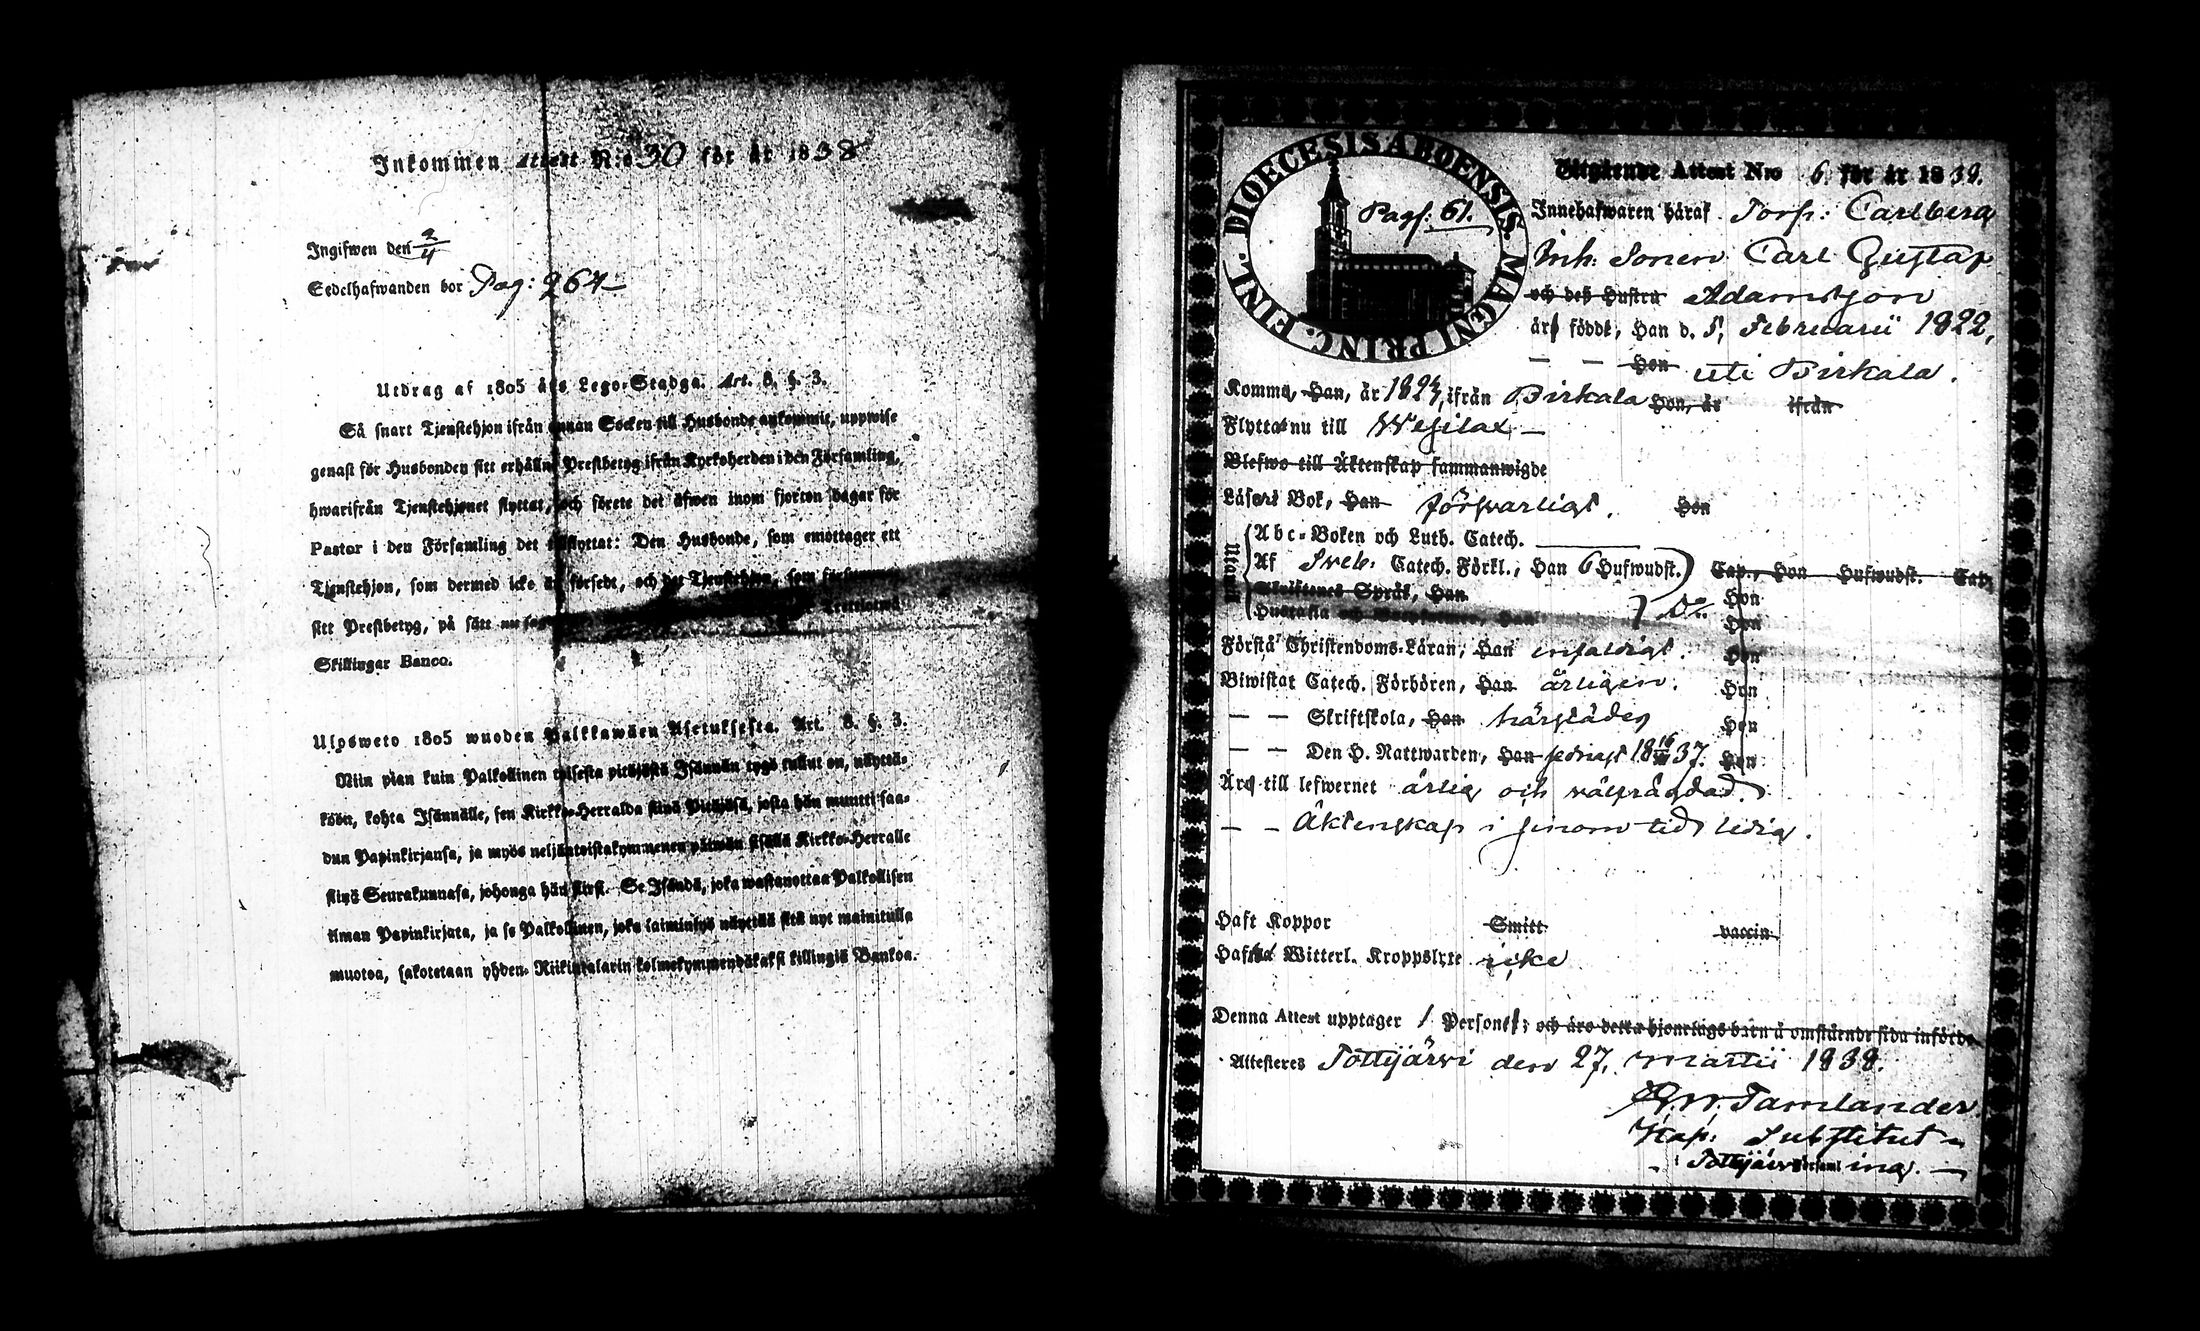 Inkommen Attest N:o 30 för år 1838
Ingifwen den 3/4
Sedelhafwanden bor Pag: 264
Utdrag af 1805 års Lego-Stadga. Art. 8. §. 3.
Så snart Tjenstehjon ifrån annan Socken till Husbonde ankommit, uppwise
genast för Husbonden sitt erhållne Prestbetyg ifrån Kyrkoherden i den Församling,
hwarifrån Tjenstehjonet flyttat, och förete det äfwen inom fjorton dagar för
Pastor i den Församling det tillflyttat: Den Husbonde, som emottager ett
Tjenstehjon, som dermed icke är försedt, och det Tjenstehjon, som
sitt Prestbetyg, på sätt nu
Skillingar Banco.
Ulosweto 1805 wuoden Palkkawäen Asetuksesta. Art. 8. §. 3.
Niin pian kuin Palkollinen toisesta pitäjästä Isännän tygö tullut on, näyttä-
köön, kohta Isännälle, sen Kirkko-Herralda siinä Pitäjäsä, josta hän muutti saa-
dun Papinkirjansa, ja myös neljäntoistakymmenen päiwän sisällä Kirkko-Herralle
siinä Seurakunnasa, johonga hän siirsi. Se Isändä, joka wastanottaa Palkollisen
ilman Papinkirjata, ja se Palkollinen, joka laiminlyö näyttää sitä nyt mainitulla
muotoa, sakotetaan yhden Riikintalarin kolmekymmendäkaksi killingiä Bankoa.
DIOECESIS ABOENSIS. MAGNI PRINC. FINL.
Pag: 61.
Utgående Attest Nro 6. för år 1838.
Innehafwaren häraf Torp: Carlberg
Inh. Sonen Carl Gustaf
och deß Hustru Adamsson
är född, Han d. 5. Februarii 1822,
— — Hon uti Birkala.
Komm, Han, år 1824, ifrån Birkala Hon, år ifrån
Flyttar nu till Wesilax —
Blefwo till Äktenskap sammanwigde
Läser i Bok, Han försvarligt. Hon
Utantill
Abc-Boken och Luth. Catech.
Af Sveb. Catech. Förkl., Han 6 Hufwudst. Cap., Hon Hufwudst. Cap.
Skriftenes Språk, Han Hon
Hustafla Han Do Hon
Förstå Christendoms-Läran, Han enfaldigt. Hon
Biwistat Catech. Förhören, Han årligen. Hon
— — Skriftskola, Han härstädes Hon
— — Den H. Nattwarden, Han sednast 18 37. Hon
Är till lefwernet ärlig och välfrägdad.
— — Äktenskap i sinom tid ledig.
Haft Koppor Smitt vaccin
Hafwa Witterl. Kroppslyte icke
Denna Attest upptager 1 Person; och äro detta hjonelags barn å omstående sida införde
Attesteres Tottijärvi den 27. Martii 1838.
Tamlander
Kap: Substitut
i Tottijärvi Församling. —